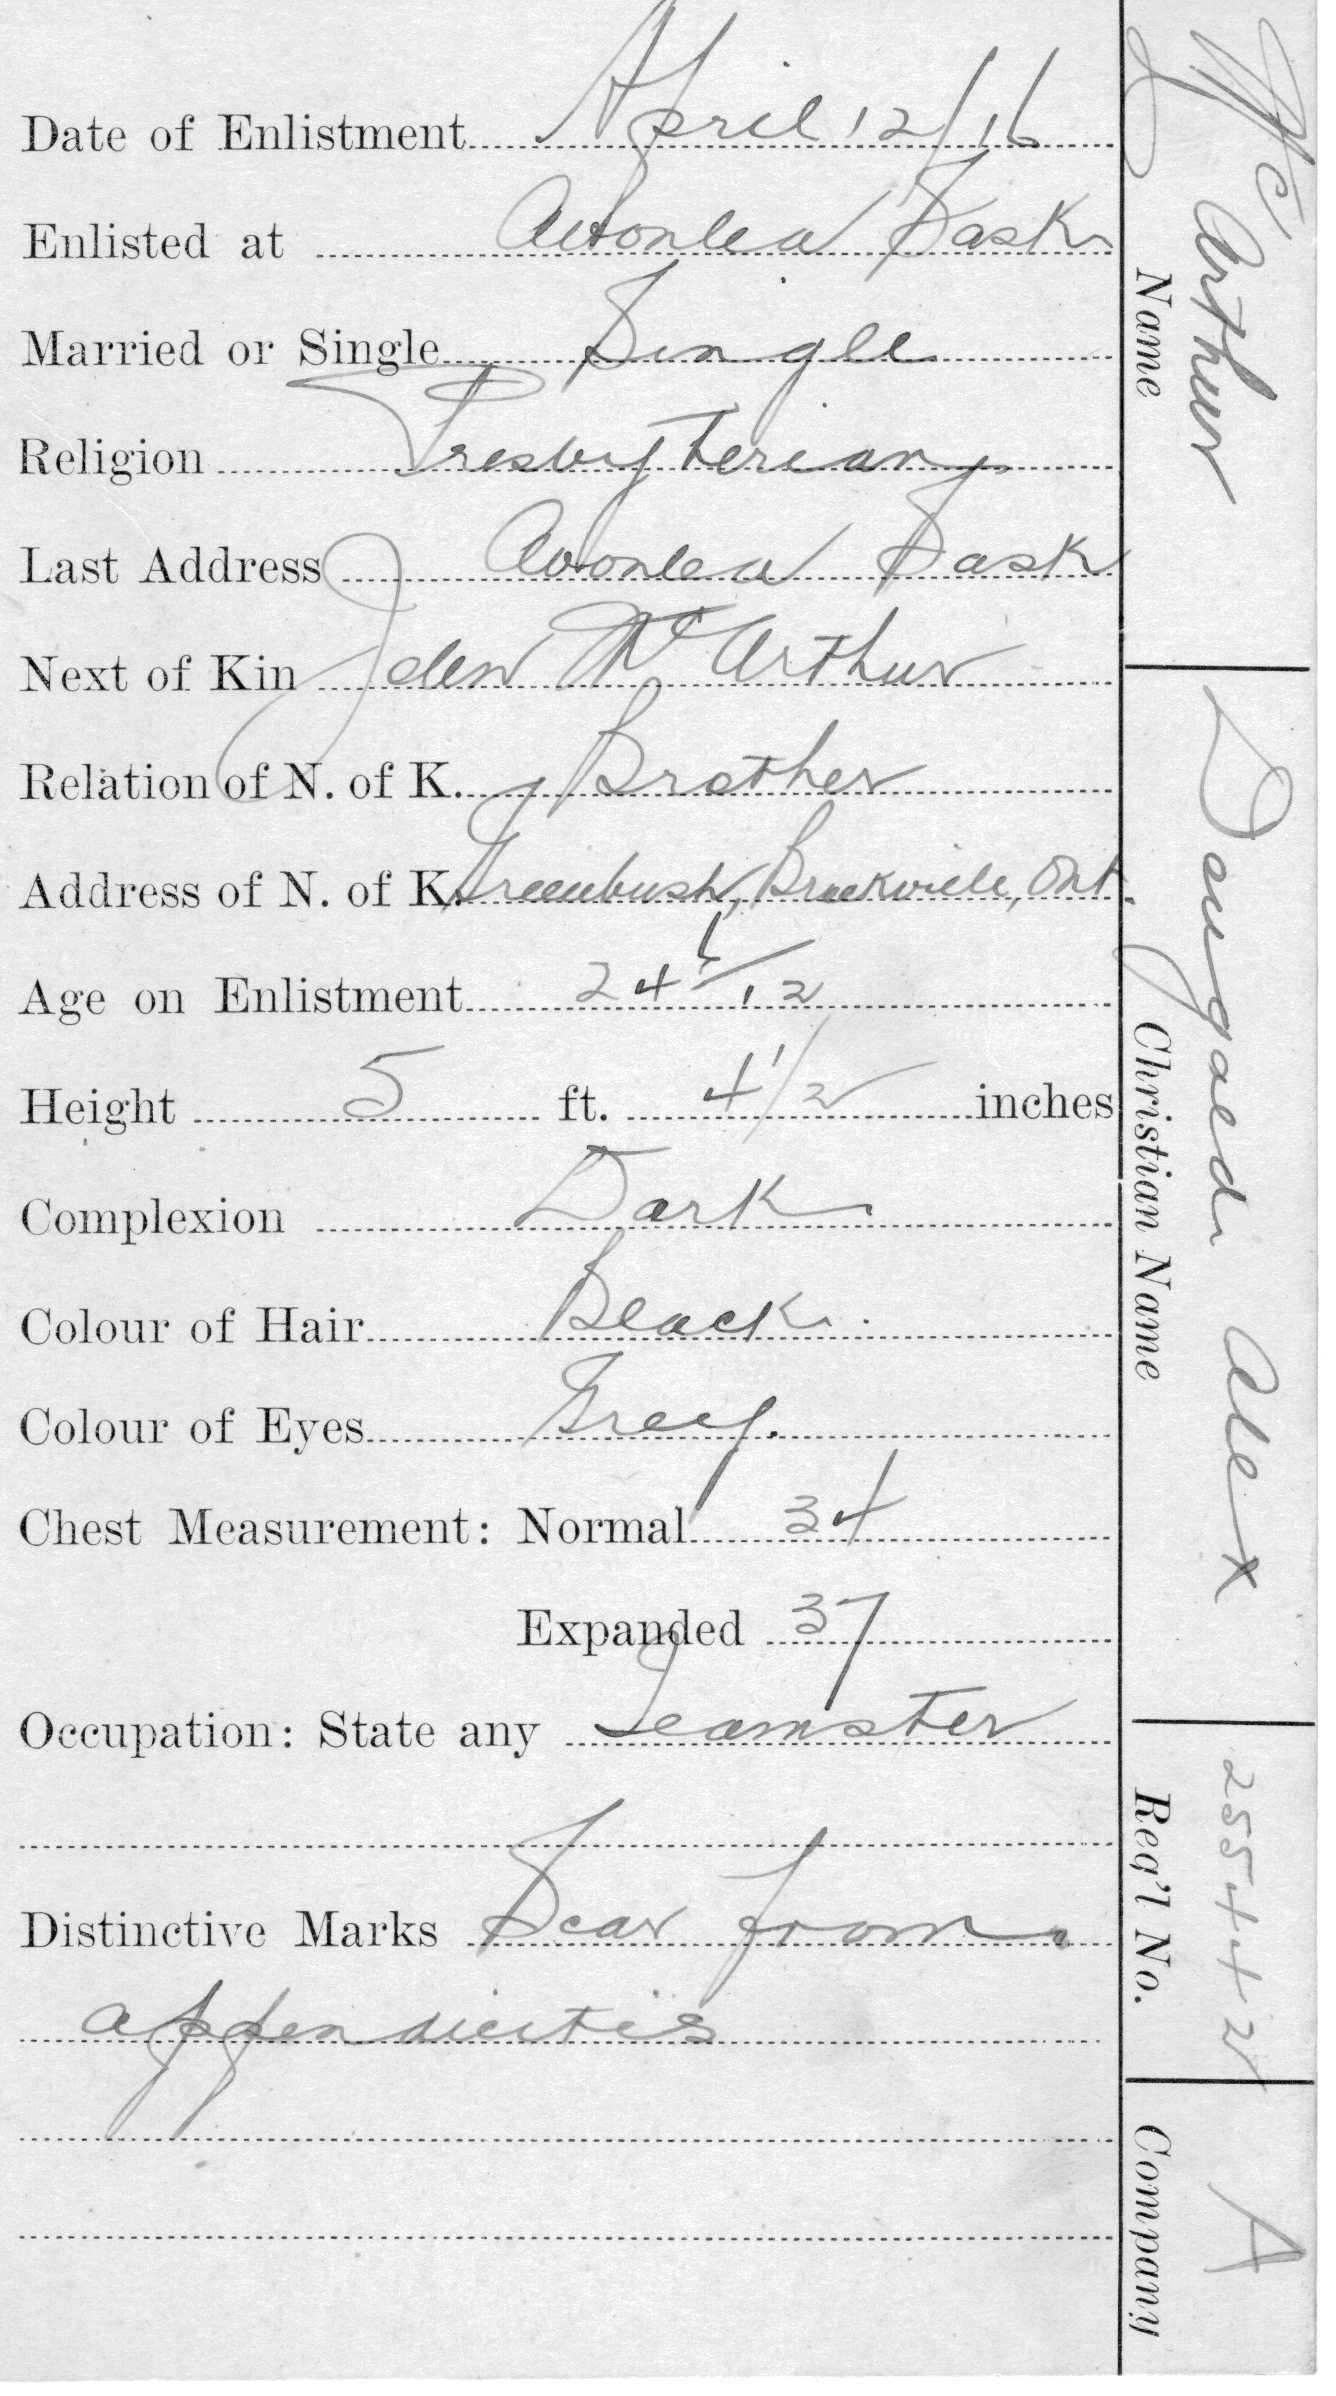 Date of Enlistment April 12/16
Enlisted at Avonlea Sask
Married or Single Single
Religion Presbyterian
Last Address Avonlea Sask
Next of Kin McArthur
Relation of N. of K. Brother
Address of N. of K. Greenbush, Brockville, Ont.
Age on Enlistment 24 6/12
Height 5 ft. 4 1/2 inches
Complexion Dark
Colour of Hair Black.
Colour of Eyes Grey.
Chest Measurement: Normal 34
Expanded 37
Occupation: State any Teamster
Distinctive Marks Scar from
appendicitis
McArthur
Name
Dougald Alex
Christian Name
255442
Req'l No.
A
Company